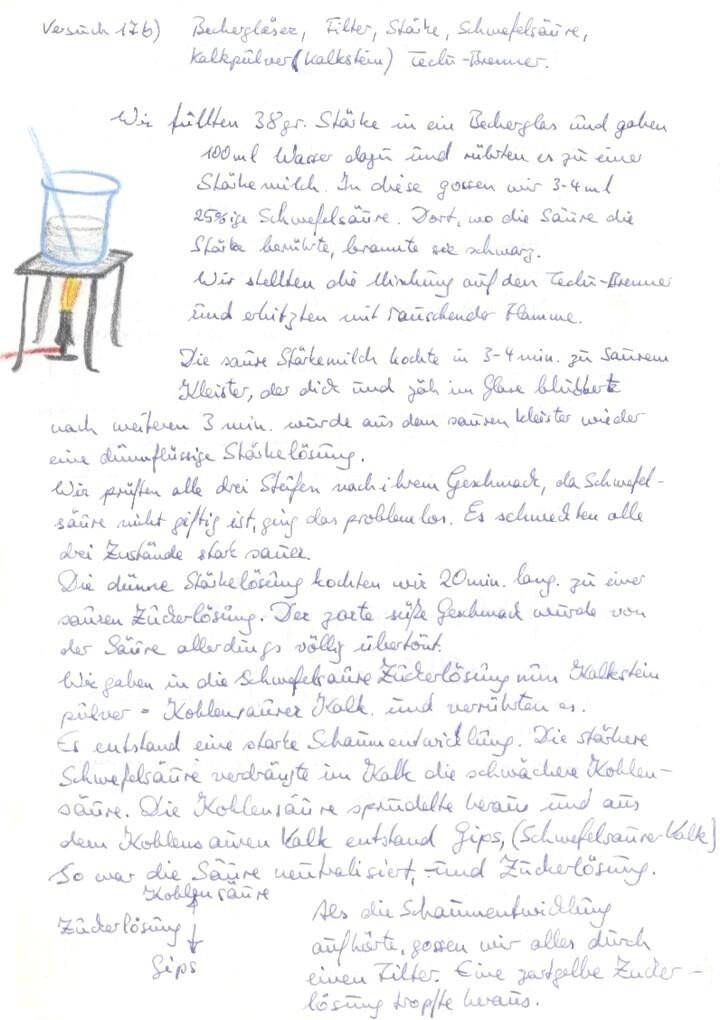 Versuch 17b) Bechergläser, Filter, Stärke, Schwefelsäure,
Kalkpulver (Kalkstein) Teclu-Brenner.
Wir füllten 38 gr. Stärke in ein Becherglas und gaben
100 ml Wasser dazu und rührten es zu einer
Stärkemilch. In diese gossen wir 3-4 ml
25%ige Schwefelsäure. Dort, wo die Säure die
Stärke berührte, brannte sie schwarz.
Wir stellten die Mischung auf den Teclu-Brenner
und erhitzten mit rauschender Flamme.
Die saure Stärkemilch kochte in 3-4 min. zu saurem
Kleister, der dick und zäh im Glase blubberte
nach weiteren 3 min. wurde aus dem sauren Kleister wieder
eine dünnflüssige Stärkelösung.
Wir prüften alle drei Steifen nach ihrem Geschmack, da Schwefel-
säure nicht giftig ist, ging das problemlos. Es schmeckten alle
drei Zustände stark sauer.
Die dünne Stärkelösung kochten wir 20 min. lang. zu einer
sauren Zuckerlösung. Der zarte süße Geschmack wurde von
der Säure allerdings völlig übertönt.
Wir gaben in die Schwefelsaure Zuckerlösung nun Kalkstein
pulver = Kohlensaurer Kalk. und verrührten es.
Es entstand eine starke Schaumentwicklung. Die stärkere
Schwefelsäure verdrängte im Kalk die schwächere Kohlen-
säure. Die Kohlensäure sprudelte heraus und aus
dem Kohlensauren Kalk entstand Gips, (Schwefelsaurer Kalk)
So war die Säure neutralisiert, und Zuckerlösung.
Kohlensäure
Zuckerlösung
Gips
Als die Schaumentwicklung
aufhörte, gossen wir alles durch
einen Filter. Eine zartgelbe Zucker-
lösung tropfte heraus.